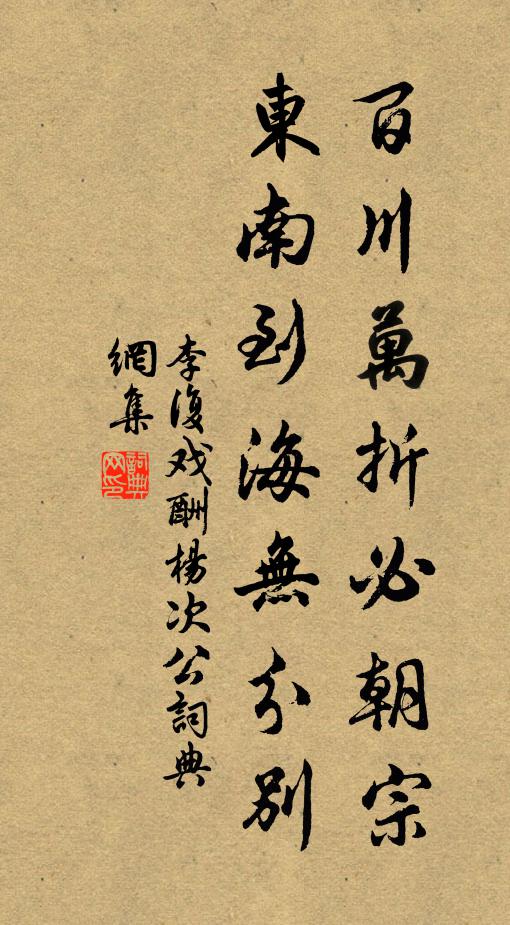 百川萬折必朝宗
東南到海無分別
李復戏酬楊次公詞典
網集
詞典网印